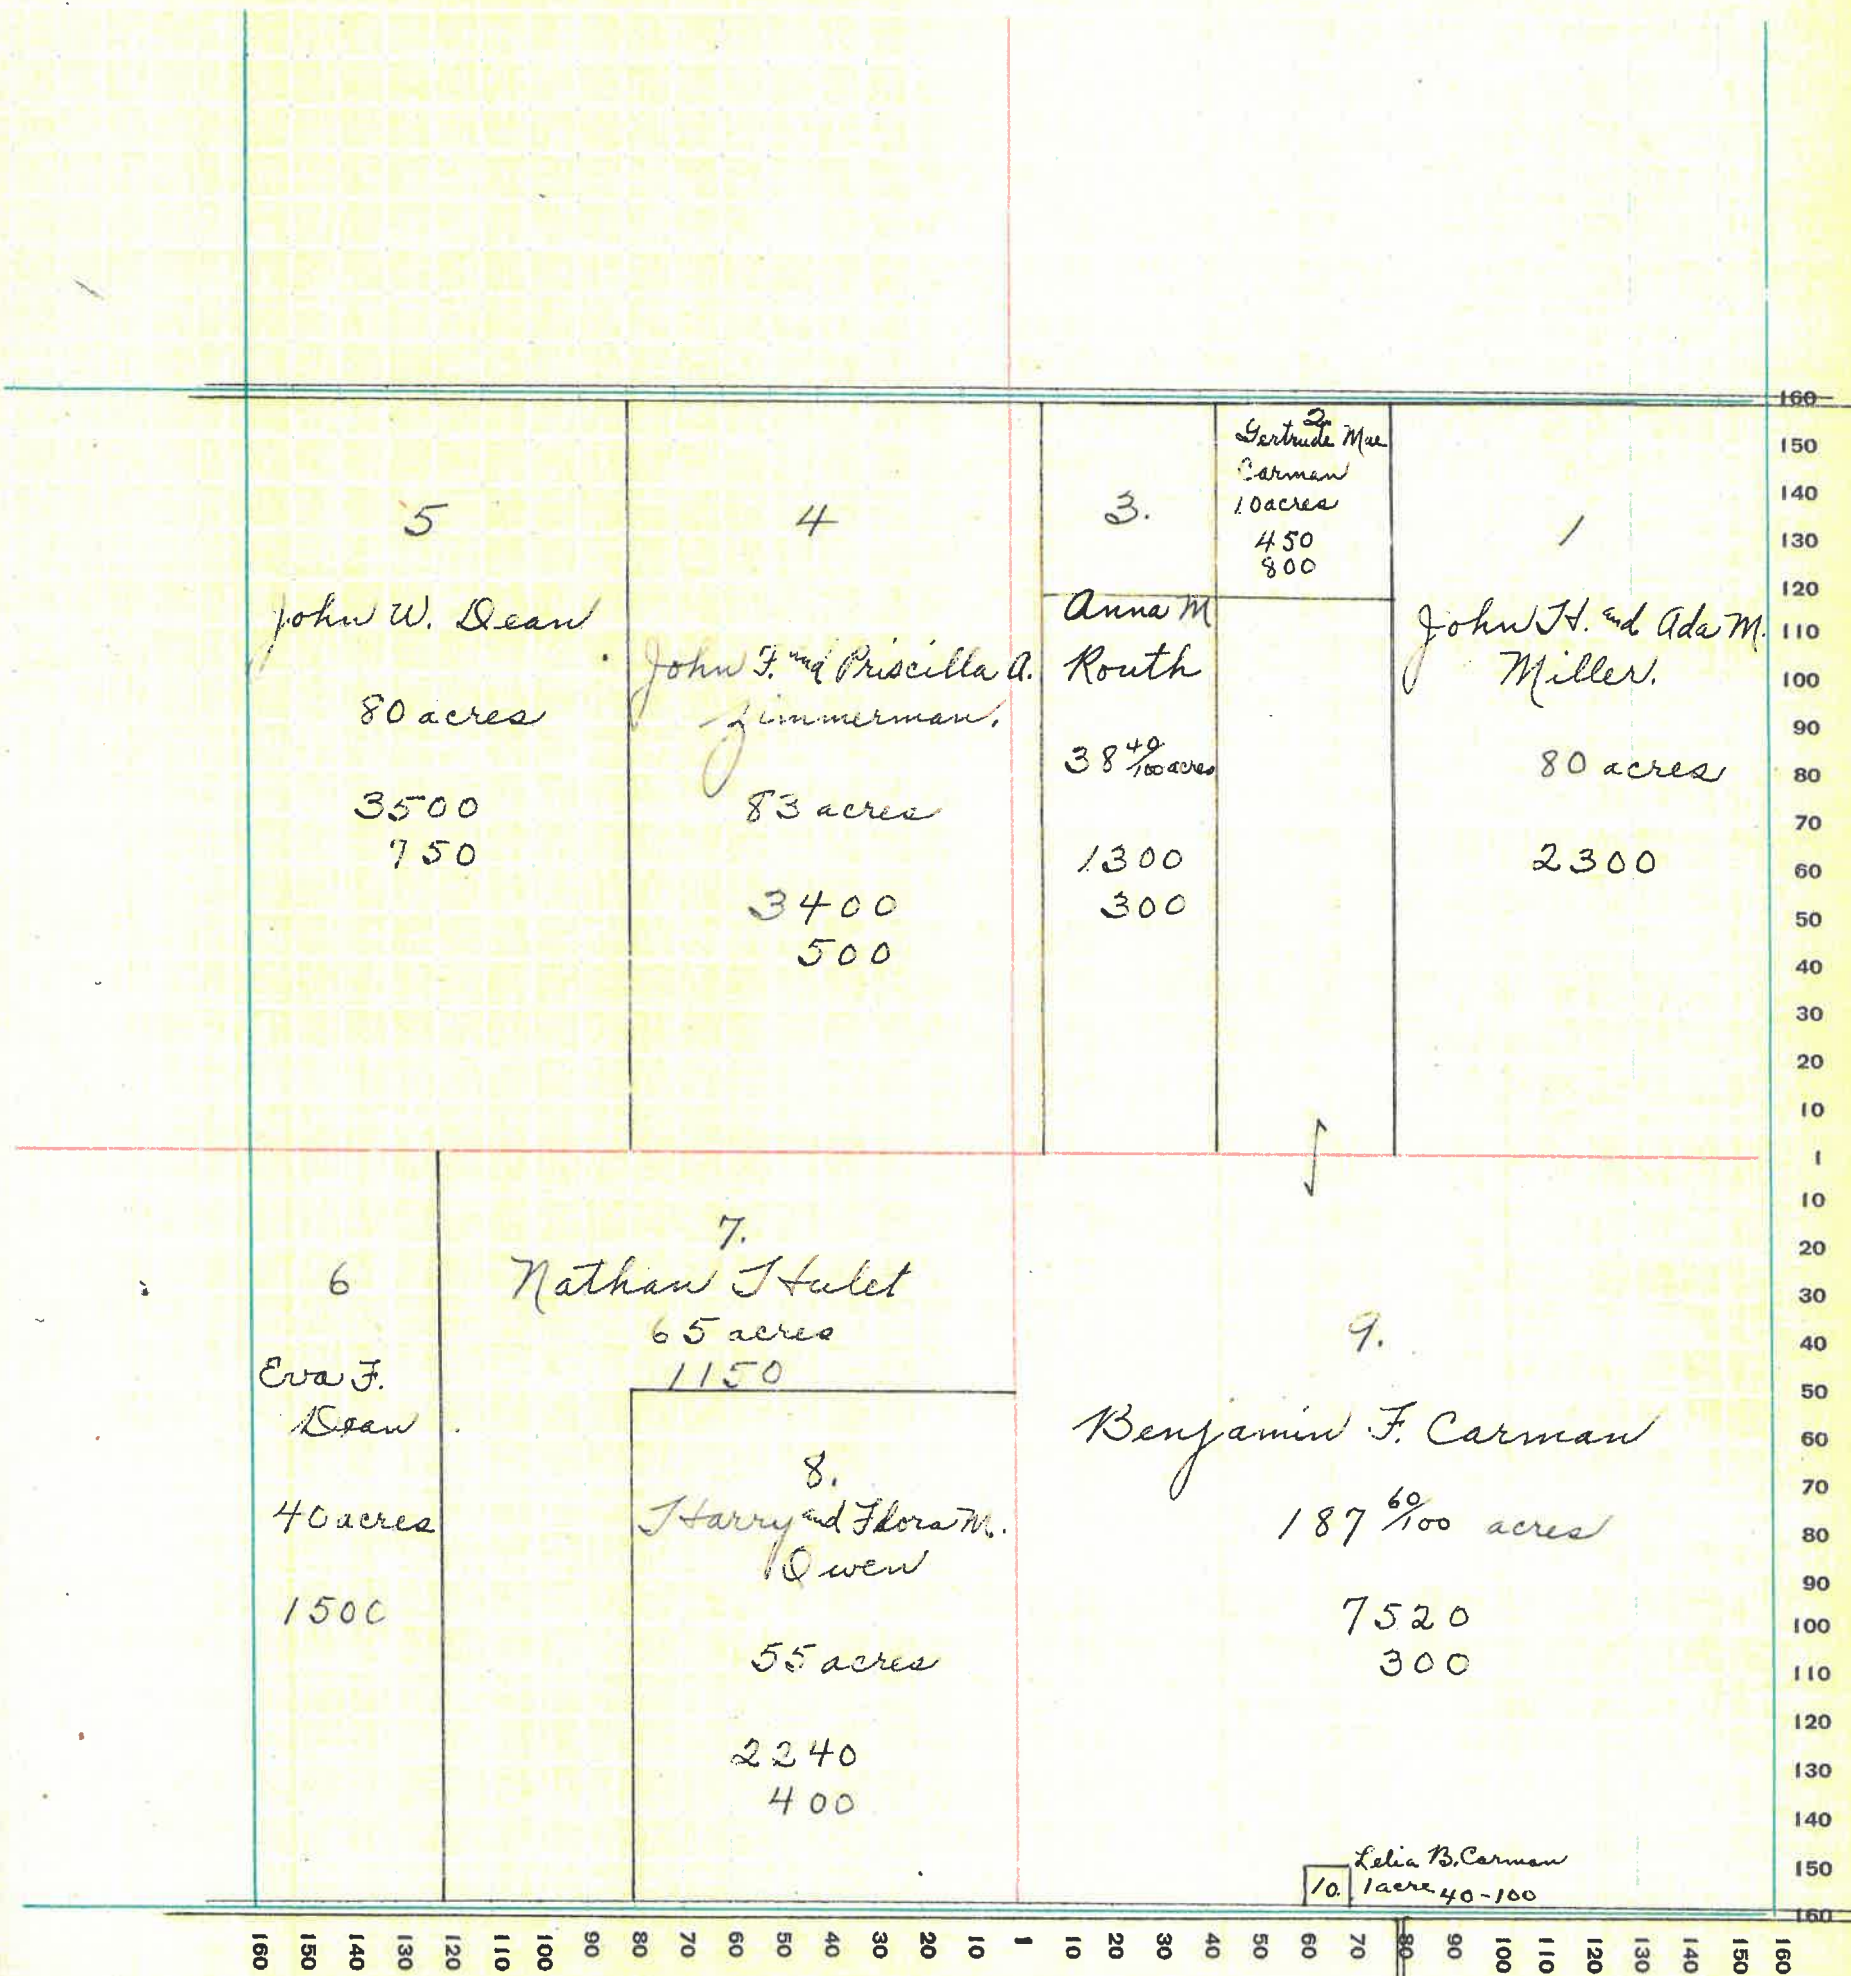 5
John W. Dean
80 acres
3500
750
4
John F. and Priscilla A.
Zimmerman.
83 acres
3400
500
3.
Anna M
Routh
38 40/100 acres
1300
300
2.
Gertrude Mae
Carman
10 acres
450
800
1
John H. and Ada M.
Miller.
80 acres
2300
6
Eva F.
Dean
40 acres
1500
7.
Nathan Hulet
65 acres
1150
8.
Harry and Flora M.
Owen
55 acres
2240
400
9.
Benjamin F. Carman
187 60/100 acres
7520
300
10.
Lelia B. Carman
1 acre 40-100
160
150
140
130
120
110
100
90
80
70
60
50
40
30
20
10
1
10
20
30
40
50
60
70
80
90
100
110
120
130
140
150
160
160 150 140 130 120 110 100 90 80 70 60 50 40 30 20 10 1 10 20 30 40 50 60 70 80 90 100 110 120 130 140 150 160